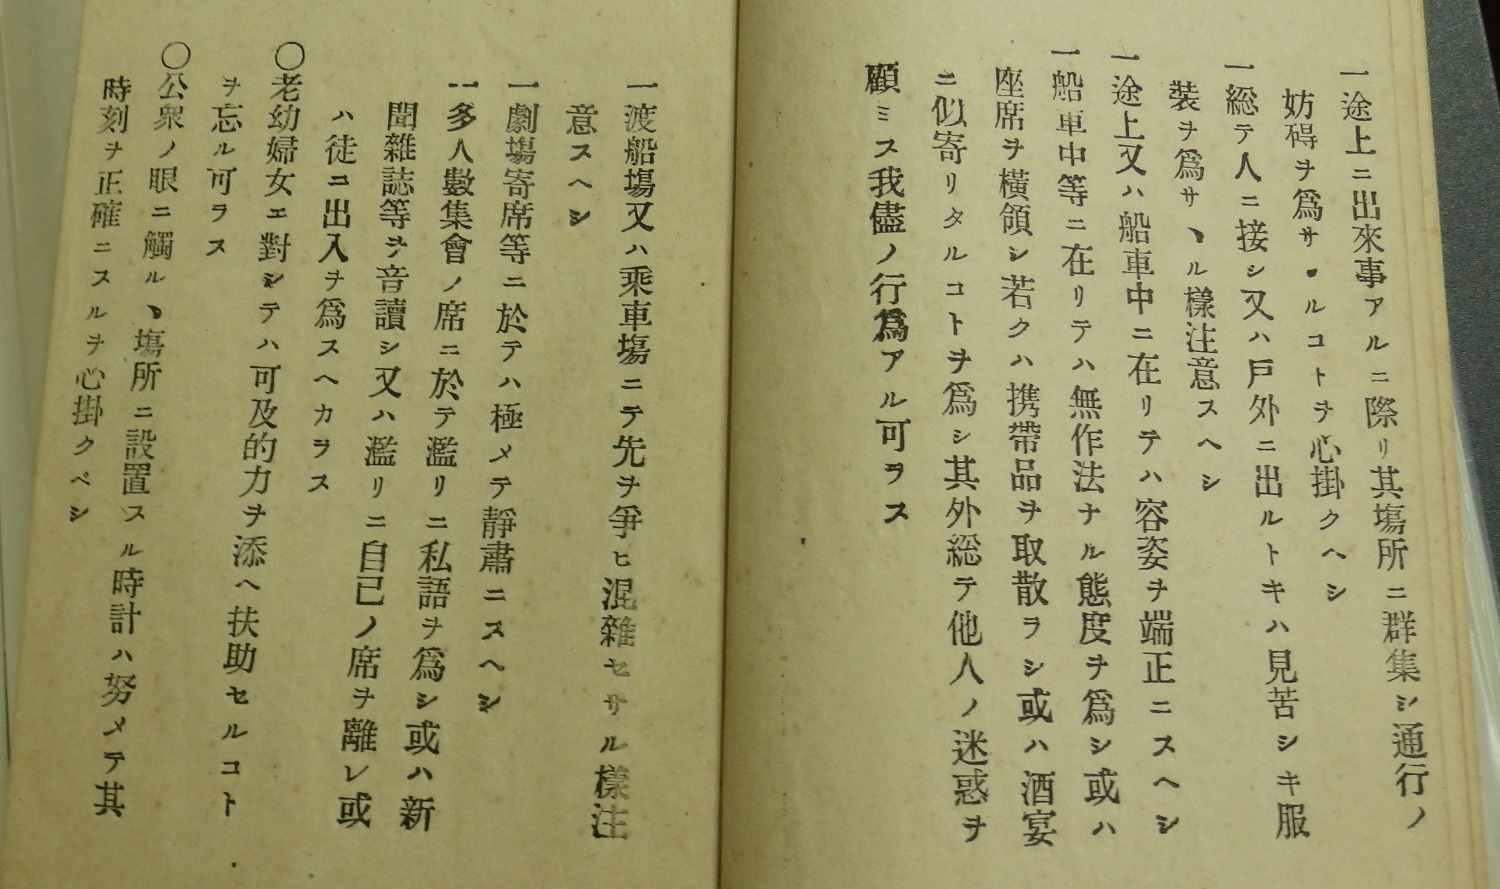 一途上ニ出來事アルニ際リ其塲所ニ群集シ通行ノ
妨碍ヲ爲サヽルコトヲ心掛クヘシ
一総テ人ニ接シ又ハ戸外ニ出ルトキハ見苦シキ服
裝ヲ爲サヽル樣注意スヘシ
一途上又ハ船車中ニ在リテハ容姿ヲ端正ニスヘシ
一船車中等ニ在リテハ無作法ナル態度ヲ爲シ或ハ
座席ヲ橫領シ若クハ携帶品ヲ取散ラシ或ハ酒宴
ニ似寄リタルコトヲ爲シ其外総テ他人ノ迷惑ヲ
顧ミス我儘ノ行爲アル可ラス
一渡船塲又ハ乘車塲ニテ先ヲ爭ヒ混雜セサル樣注
意スヘシ
一劇塲寄席等ニ於テハ極メテ靜肅ニスヘシ
一多人數集會ノ席ニ於テ濫リニ私語ヲ爲シ或ハ新
聞雜誌等ヲ音讀シ又ハ濫リニ自己ノ席ヲ離レ或
ハ徒ニ出入ヲ爲スヘカラス
〇老幼婦女エ對シテハ可及的力ヲ添ヘ扶助セルコト
ヲ忘ル可ラス
〇公衆ノ眼ニ觸ルヽ塲所ニ設置スル時計ハ努メテ其
時刻ヲ正確ニスルヲ心掛クベシ